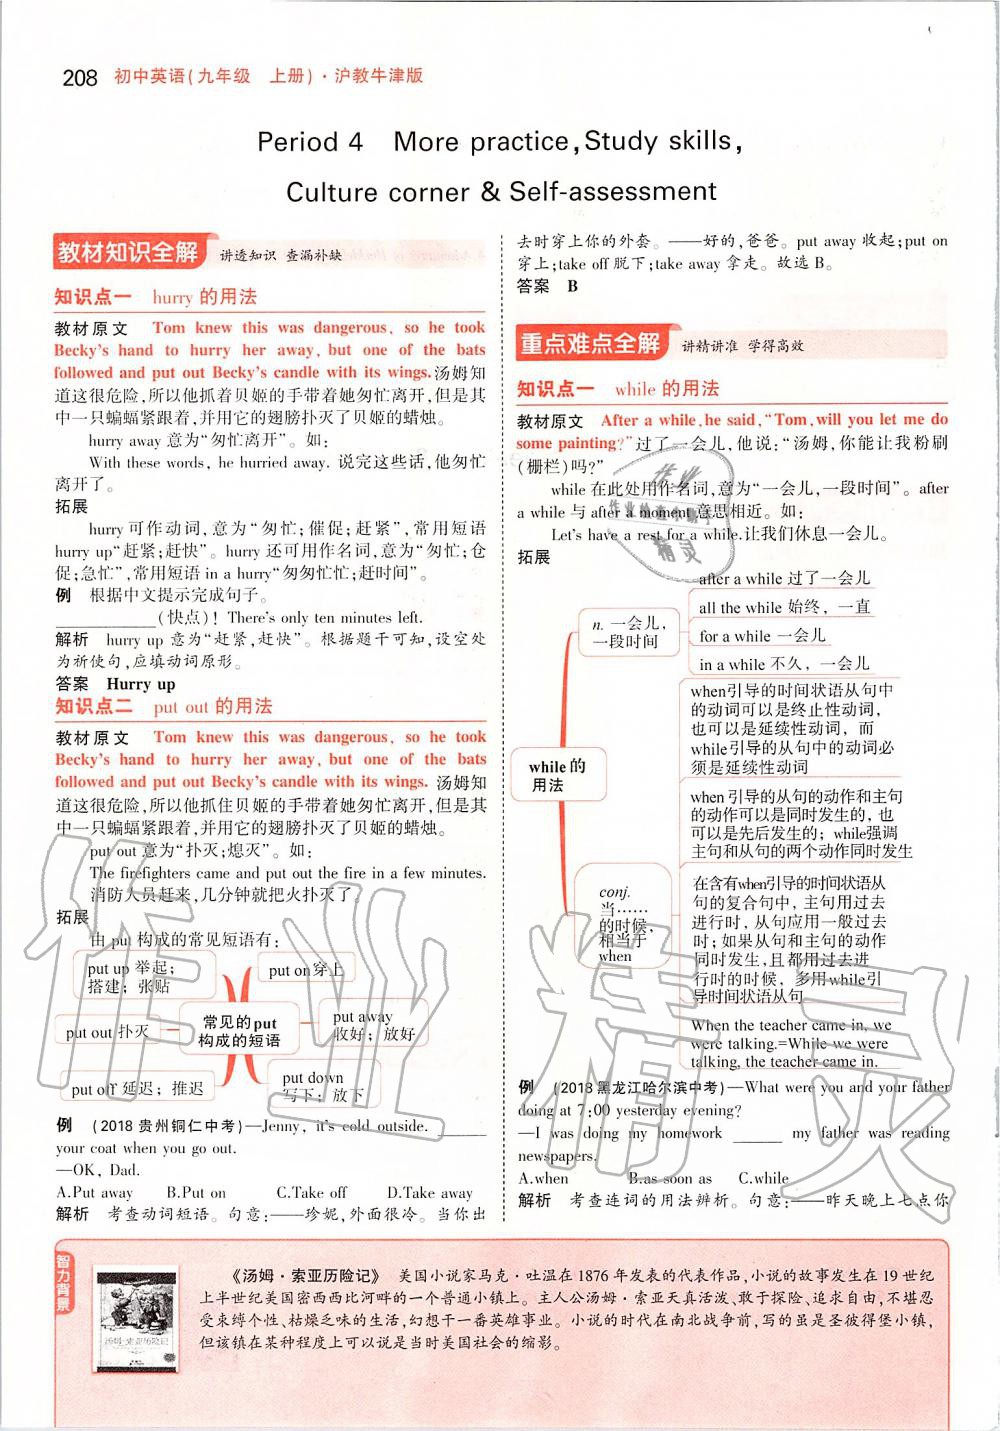 208 初中英语(九年级 上册)·沪教牛津版
Period 4 More practice,Study skills,
Culture corner & Self-assessment
教材知识全解 讲透知识 查漏补缺
知识点一 hurry 的用法
教材原文 Tom knew this was dangerous, so he took
Becky's hand to hurry her away, but one of the bats
followed and put out Becky's candle with its wings.汤姆知
道这很危险,所以他抓着贝姬的手带着她匆忙离开,但是其
中一只蝙蝠紧跟着,并用它的翅膀扑灭了贝姬的蜡烛。
hurry away 意为“匆忙离开”。如:
With these words, he hurried away. 说完这些话,他匆忙
离开了。
拓展
hurry 可作动词,意为“匆忙;催促;赶紧”,常用短语
hurry up“赶紧;赶快”。hurry 还可用作名词,意为“匆忙;仓
促;急忙”,常用短语 in a hurry“匆匆忙忙;赶时间”。
例 根据中文提示完成句子。
________(快点)! There's only ten minutes left.
解析 hurry up 意为“赶紧,赶快”。根据题干可知,设空处
为祈使句,应填动词原形。
答案 Hurry up
知识点二 put out 的用法
教材原文 Tom knew this was dangerous, so he took
Becky's hand to hurry her away, but one of the bats
followed and put out Becky's candle with its wings. 汤姆知
道这很危险,所以他抓住贝姬的手带着她匆忙离开,但是其
中一只蝙蝠紧跟着,并用它的翅膀扑灭了贝姬的蜡烛。
put out 意为“扑灭;熄灭”。如:
The firefighters came and put out the fire in a few minutes.
消防人员赶来,几分钟就把火扑灭了。
拓展
由 put 构成的常见短语有:
put up 举起;
搭建;张贴
put on穿上
put out 扑灭
常见的put
构成的短语
put away
收好;放好
put off 延迟;推迟
put down
写下;放下
例 (2018 贵州铜仁中考)—Jenny, it's cold outside. ______
your coat when you go out.
—OK, Dad.
A.Put away B.Put on C.Take off D.Take away
解析 考查动词短语。句意:——珍妮,外面很冷。当你出
去时穿上你的外套。——好的,爸爸。put away 收起;put on
穿上;take off 脱下;take away 拿走。故选 B。
答案 B
重点难点全解 讲精讲准 学得高效
知识点一 while 的用法
教材原文 After a while,he said,“Tom,will you let me do
some painting?”过了一会儿,他说:“汤姆,你能让我粉刷
(栅栏)吗?”
while 在此处用作名词,意为“一会儿,一段时间”。after
a while 与 after a moment 意思相近。如:
Let's have a rest for a while.让我们休息一会儿。
拓展
while的
用法
n. 一会儿,
一段时间
after a while 过了一会儿
all the while 始终,一直
for a while 一会儿
in a while 不久,一会儿
conj.
当……
的时候,
相当于
when
when引导的时间状语从句中
的动词可以是终止性动词,
也可以是延续性动词,而
while引导的从句中的动词必
须是延续性动词
when 引导的从句的动作和主句
的动作可以是同时发生的,也
可以是先后发生的;while强调
主句和从句的两个动作同时发生
在含有when引导的时间状语从
句的复合句中,主句用过去
进行时,从句应用一般过去
时;如果从句和主句的动作
同时发生,且都用过去进
行时的时候,多用while引
导时间状语从句
When the teacher came in, we
were talking.=While we were
talking, the teacher came in.
例 (2018 黑龙江哈尔滨中考)—What were you and your father
doing at 7:00 yesterday evening?
—I was doing my homework ______ my father was reading
newspapers.
A.when B.as soon as C.while
解析 考查连词的用法辨析。句意:——昨天晚上七点你
智力背景
《汤姆·索亚历险记》 美国小说家马克·吐温在 1876 年发表的代表作品,小说的故事发生在 19 世纪
上半世纪美国密西西比河畔的一个普通小镇上。主人公汤姆·索亚天真活泼、敢于探险、追求自由,不堪忍
受束缚个性、枯燥乏味的生活,幻想干一番英雄事业。小说的时代在南北战争前,写的虽是圣彼得堡小镇,
但该镇在某种程度上可以说是当时美国社会的缩影。
汤姆·索亚历险记
作业精灵